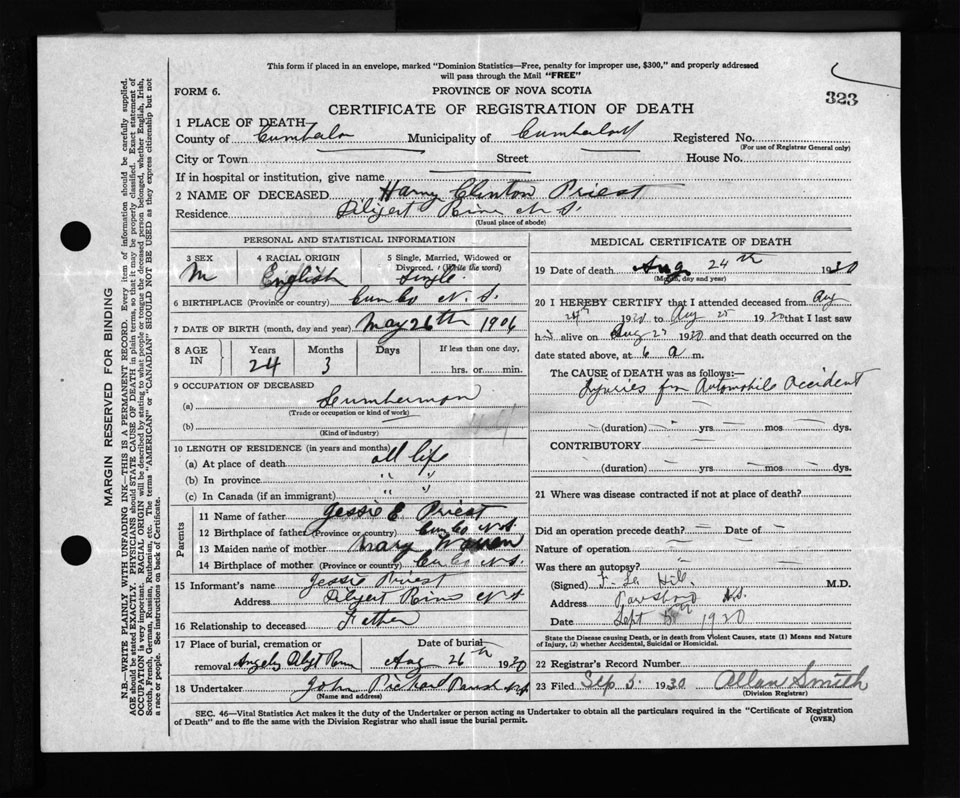 This form if placed in an envelope, marked "Dominion Statistics—Free, penalty for improper use, $300," and properly addressed
will pass through the Mail "FREE"
FORM 6.
PROVINCE OF NOVA SCOTIA
323
CERTIFICATE OF REGISTRATION OF DEATH
1 PLACE OF DEATH
County of Municipality of Registered No.
(For use of Registrar General only)
City or Town Street House No.
If in hospital or institution, give name
2 NAME OF DECEASED Harry Clinton Priest
Residence N S.
(Usual place of abode)
PERSONAL AND STATISTICAL INFORMATION
3 SEX 4 RACIAL ORIGIN 5 Single, Married, Widowed or Divorced. (Write the word)
M English Single.
6 BIRTHPLACE (Province or country) Cum Co N. S.
7 DATE OF BIRTH (month, day and year) May 26th 1906
8 AGE IN Years Months Days If less than one day,
24 3 hrs. or min.
9 OCCUPATION OF DECEASED
(a) Lumberman
(Trade or occupation or kind of work)
(b)
(Kind of industry)
10 LENGTH OF RESIDENCE (in years and months)
(a) At place of death all life
(b) In province " "
(c) In Canada (if an immigrant) " "
Parents
11 Name of father Jessie E Priest
12 Birthplace of father (Province or country) Cum Co N.S.
13 Maiden name of mother Mary
14 Birthplace of mother (Province or country) Cum Co N.S.
15 Informant's name Jessie Priest
Address N S
16 Relationship to deceased Father
17 Place of burial, cremation or removal Date of burial
Aug 26th 1930
18 Undertaker John
(Name and address)
MEDICAL CERTIFICATE OF DEATH
19 Date of death Aug 24th 1930
(Month, day and year)
20 I HEREBY CERTIFY that I attended deceased from Aug
24th 1930 to Aug 25 1930 that I last saw
h alive on Aug 1930 and that death occurred on the
date stated above, at 6 a m.
The CAUSE of DEATH was as follows:—
Injuries Automobile Accident
(duration) yrs mos dys.
CONTRIBUTORY
(duration) yrs mos dys.
21 Where was disease contracted if not at place of death?
Did an operation precede death? Date of
Nature of operation
Was there an autopsy?
(Signed) M.D.
Address N.S.
Date Sept 1930
State the Disease causing Death, or in death from Violent Causes, state (1) Means and Nature
of Injury, (2) whether Accidental, Suicidal or Homicidal.
22 Registrar's Record Number
23 Filed Sep 5. 1930 Allan Smith
(Division Registrar)
SEC. 46—Vital Statistics Act makes it the duty of the Undertaker or person acting as Undertaker to obtain all the particulars required in the "Certificate of Registration
of Death" and to file the same with the Division Registrar who shall issue the burial permit.
(OVER)
MARGIN RESERVED FOR BINDING
N.B.—WRITE PLAINLY WITH UNFADING INK—THIS IS A PERMANENT RECORD. Every item of information should be carefully supplied.
AGE should be stated EXACTLY. PHYSICIANS should STATE CAUSE OF DEATH in plain terms, so that it may be properly classified. Exact statement of
OCCUPATION is very important. RACIAL ORIGIN will be described by stating to what people or tongue the deceased person belonged, whether English, Irish,
Scotch, French, German, Russian, Ruthenian, etc. The terms "AMERICAN" or "CANADIAN" SHOULD NOT BE USED as they express citizenship but not
a race or people. See instructions on back of Certificate.